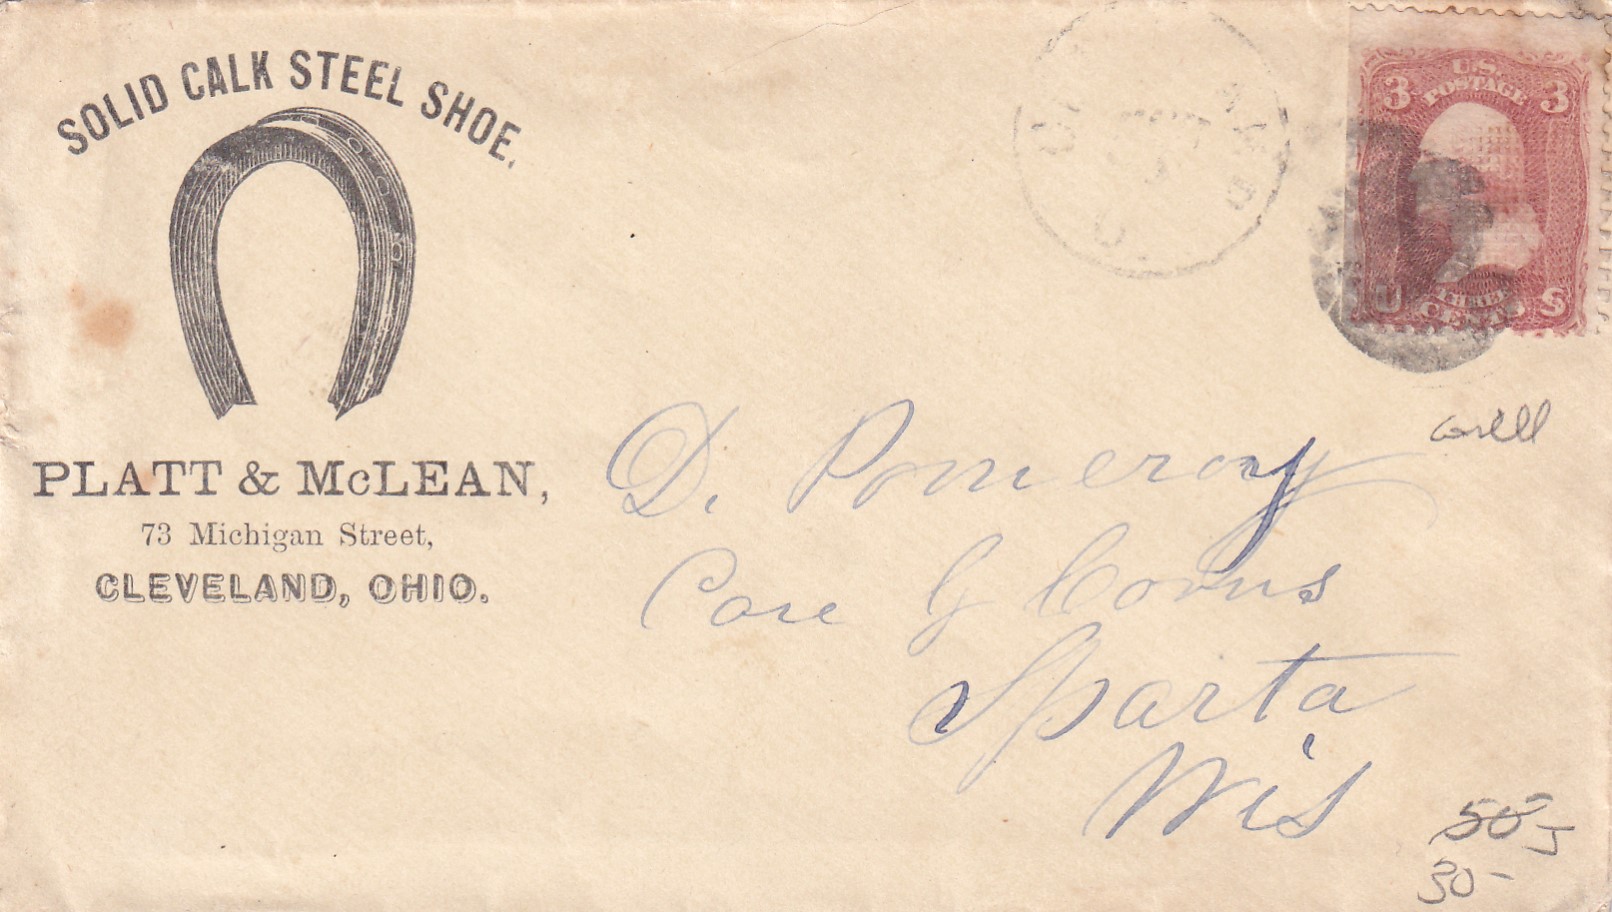 SOLID CALK STEEL SHOE.
PLATT & McLEAN,
73 Michigan Street,
CLEVELAND, OHIO.
U.S.
POSTAGE
3 3
U THREE S
CENTS
D. Pomeroy
Care G
Sparta
Wis
50-
30-